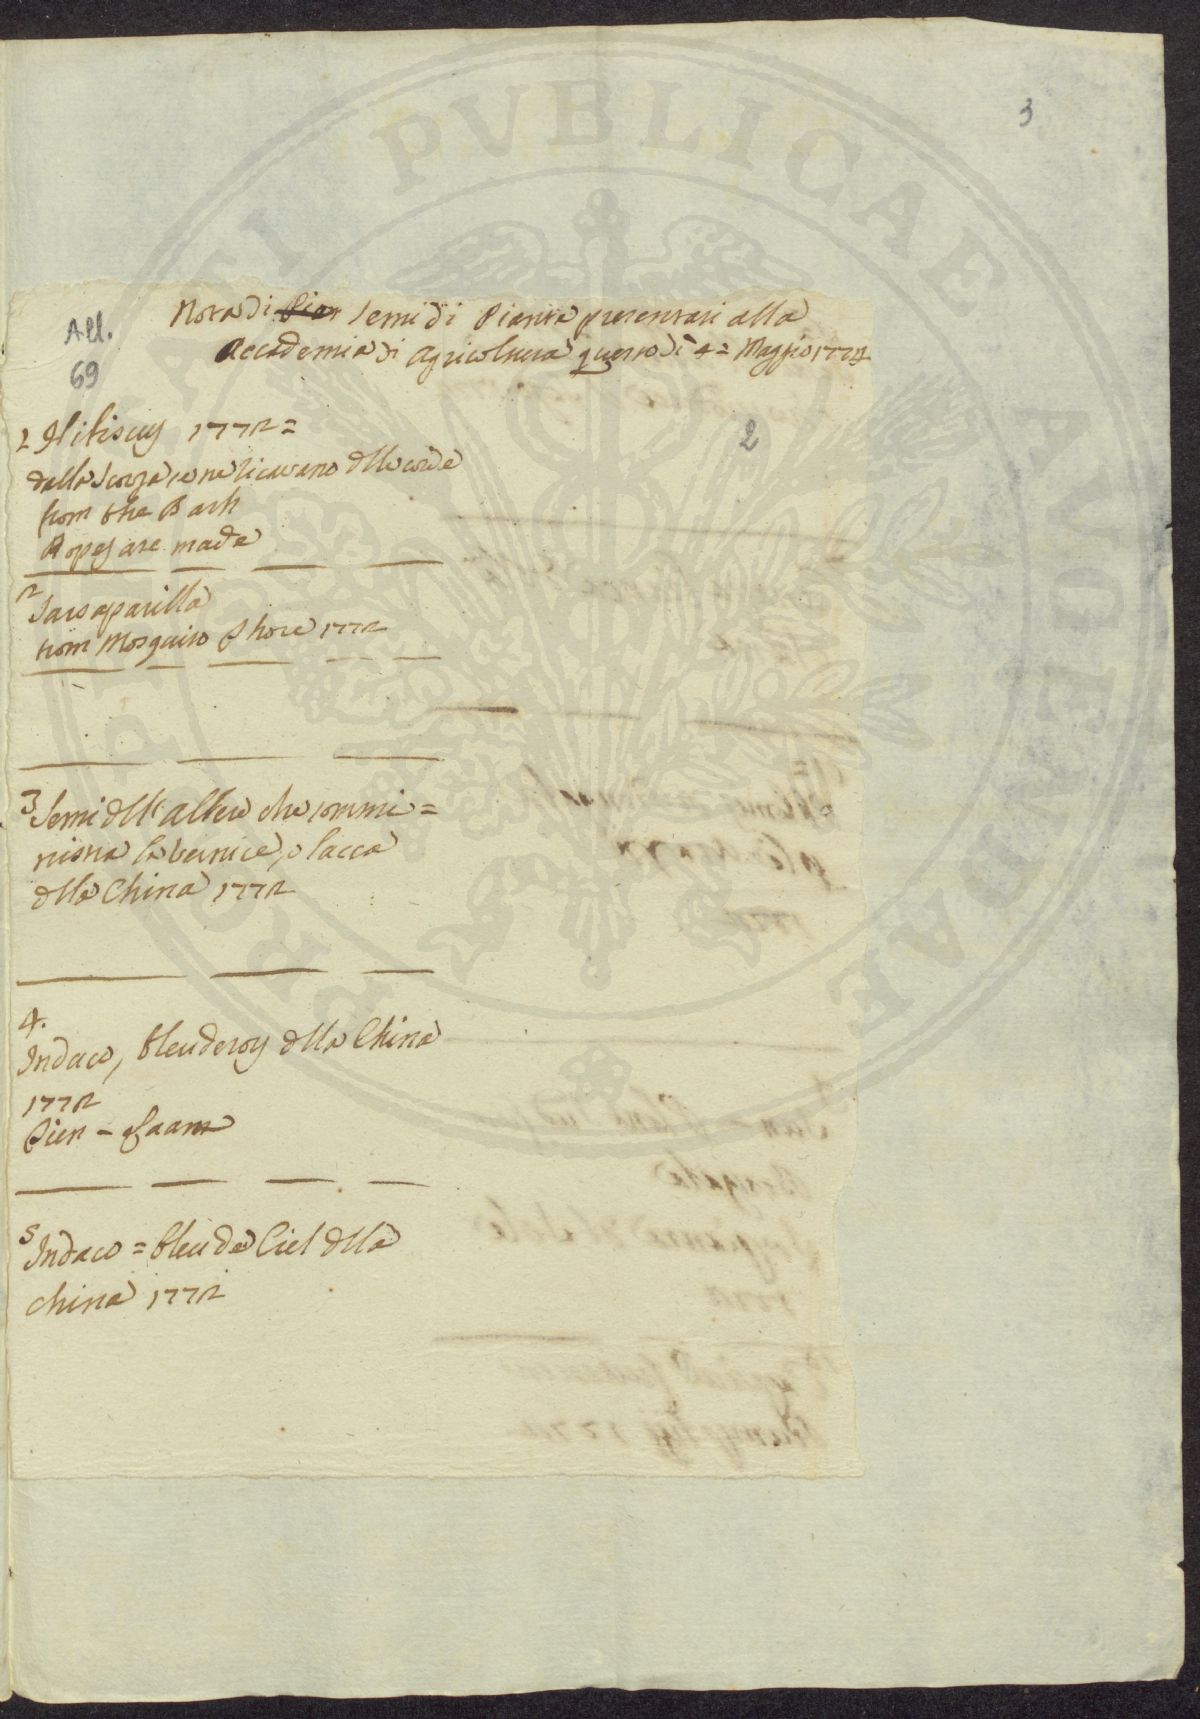 3
All.
69
Nota di Pian Semi di Pianta presentati alla
Accademia di Agricoltura questo dì 4 = Maggio 1774
2
1 Hibiscus 1772 =
dalla scorza se ne ricavano delle corde
from the Bark
Ropes are made
2
Sarsaparilla
from Mosquito Shore 1772
3 Semi dell'albero che sommi =
nistra la vernice, o lacca
della China 1772
4.
Indaco, bleu de roy della China
1772
5 Indaco = bleu de Ciel della
China 1772
PROBITATI PVBLICAE AVGENDAE